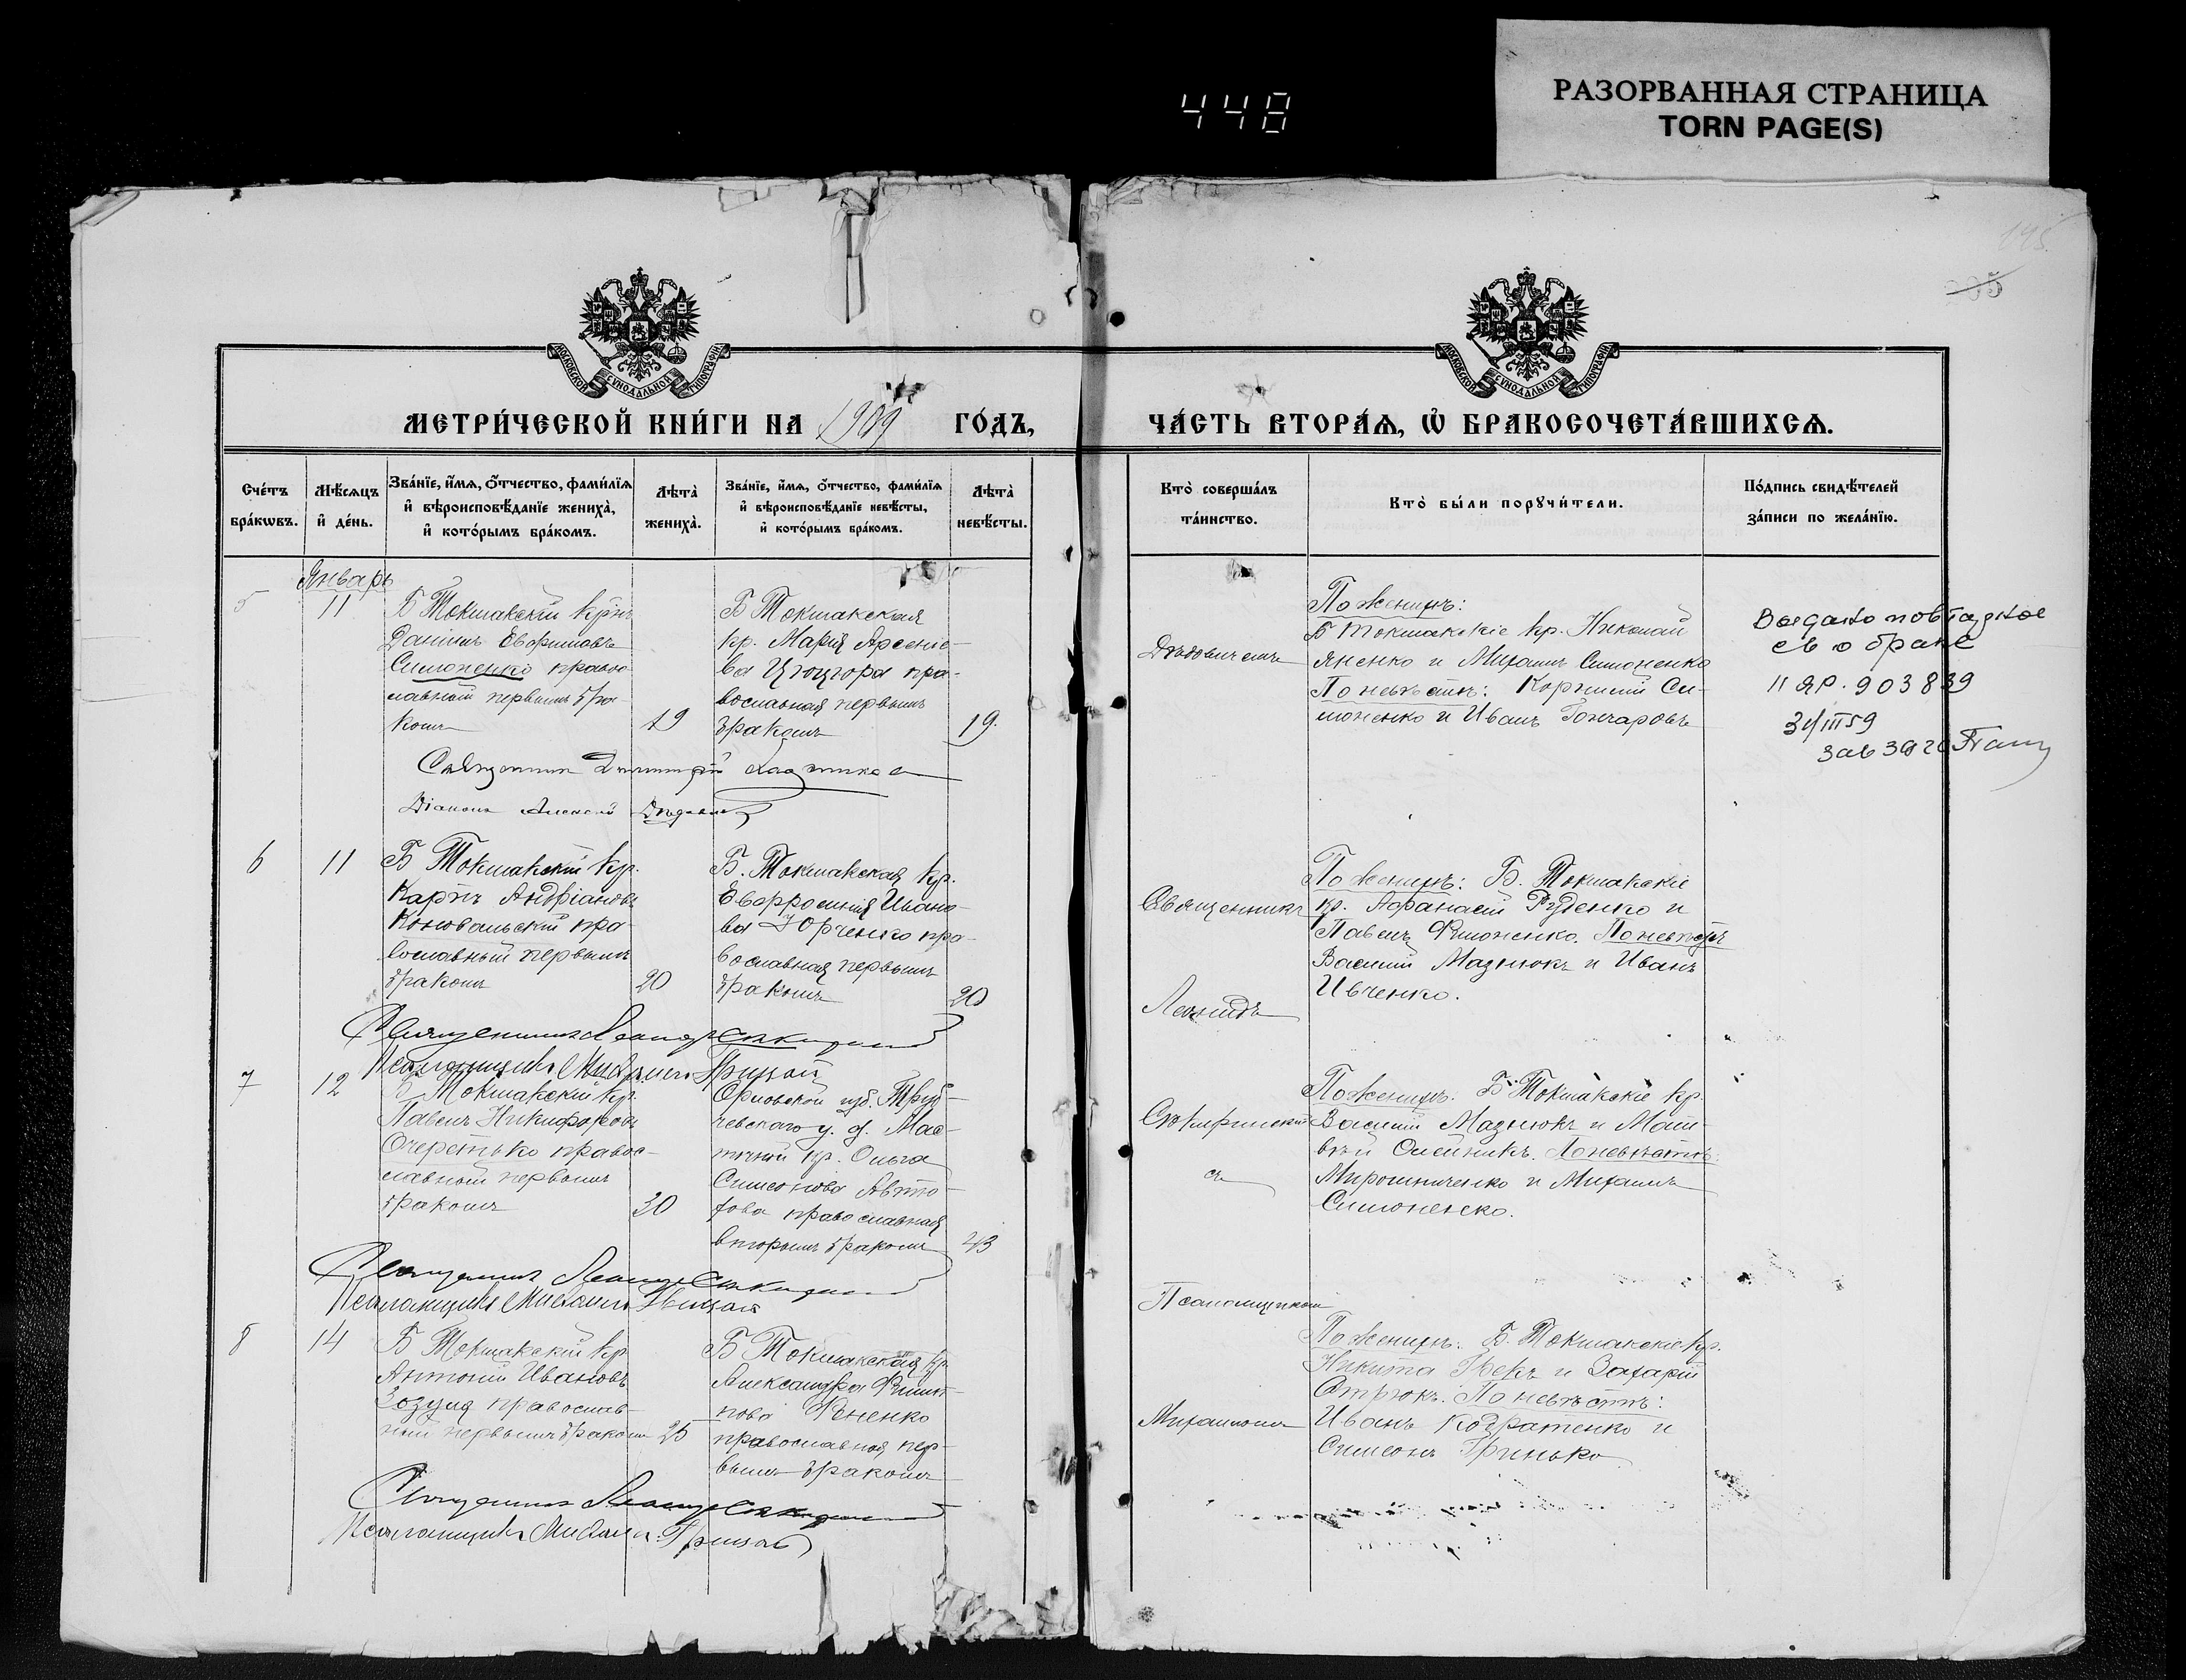 448
РАЗОРВАННАЯ СТРАНИЦА
TORN PAGE(S)
195
МОСКОВСКОЙ СѴНОДАЛЬНОЙ ТИПОГРАФІИ
МОСКОВСКОЙ СѴНОДАЛЬНОЙ ТИПОГРАФІИ
МЕТРИ́ЧЕСКОЙ КНИ́ГИ НА 1909 ГО́ДЪ,
ЧА́СТЬ ВТОРА́Ѧ, Ѽ БРАКОСОЧЕТА́ВШИХСѦ.
Сче́тъ
бра́кѡвъ.
Мѣ́сѧцъ
и҆ де́нь.
Зва́нїе, и҆́мѧ, ѻ҆́тчество, фами́лїѧ
и҆ вѣроисповѣ́данїе жениха̀,
и҆ кото́рымъ бра́комъ.
Лѣта̀
жениха̀.
Зва́нїе, и҆́мѧ, ѻ҆́тчество, фами́лїѧ
и҆ вѣроисповѣ́данїе невѣ́сты,
и҆ кото́рымъ бра́комъ.
Лѣта̀
невѣ́сты.
Кто̀ соверша́лъ
та́инство.
Кто̀ бы́ли порꙋчи́тели.
По́дпись свидѣ́телей
за́писи по жела́нїю.
Январь
5
11
Б Токмакскій крн
Даніилъ Евфимовъ
Симоненко правос
лавный первымъ бра
комъ
19
Б Токмакская
кр. Марія Арсеніе-
ва Цюцюра пра-
вославная первымъ
бракомъ
19.
По женихѣ:
Б Токмакскіе кр. Николай
Яненко и Михаилъ Симоненко
По невѣстѣ: Корнилій Си-
моненко и Иванъ Гончаровъ
Выдано повторное
св о браке
II ЯР. 903839
31/III 59
зав загс
Священник Димитрій
Діаконъ Алексій
6
11
Б Токмакскій кр.
Карпъ Андріановъ
Коновальскій пра
вославный первымъ
бракомъ
20
Б. Токмакская кр.
Евфросинія Ивано-
ва Юрченко пра-
вославная первымъ
бракомъ
20
Священникъ
Леонидъ
По женихѣ: Б. Токмакскіе
кр. Афанасій Руденко и
Павелъ Филоненко. По невѣстѣ
Василій Мазнюкъ и Иванъ
Ивченко.
Священникъ Леонид
Псаломщикъ Михаилъ Грицай
7
12
Б Токмакскій кр.
Павелъ Никифоровъ
Очеретько правос-
лавный первымъ
бракомъ
30
Орловской губ. Труб-
чевскаго у. д. Мас-
кр. Ольга
Симеонова Авто-
рова православная
вторымъ бракомъ
43
съ
По женихѣ: Б Токмакскіе кр.
Василій Мазнюкъ и Мат-
вѣй Олейникъ. По невѣстѣ:
Мирошниченко и Михаилъ
Симоненко.
Священникъ Леонид
Псаломщикъ Михаилъ Грицай
8
14
Б Токмакскій кр
Антоній Ивановъ
Зозуля православ-
ный первымъ бракомъ 25
Б Токмакская кр.
Александра Филип-
пова Фененко
православная пер-
вымъ бракомъ
Псаломщикомъ
Михаиломъ
По женихѣ: Б. Токмакскіе кр.
Никита Грекъ и Захарій
Отрюкъ. По невѣстѣ:
Иванъ Кодратенко и
Симеонъ Гринько
Священникъ Леонид
Псаломщикъ Михаилъ Грицай